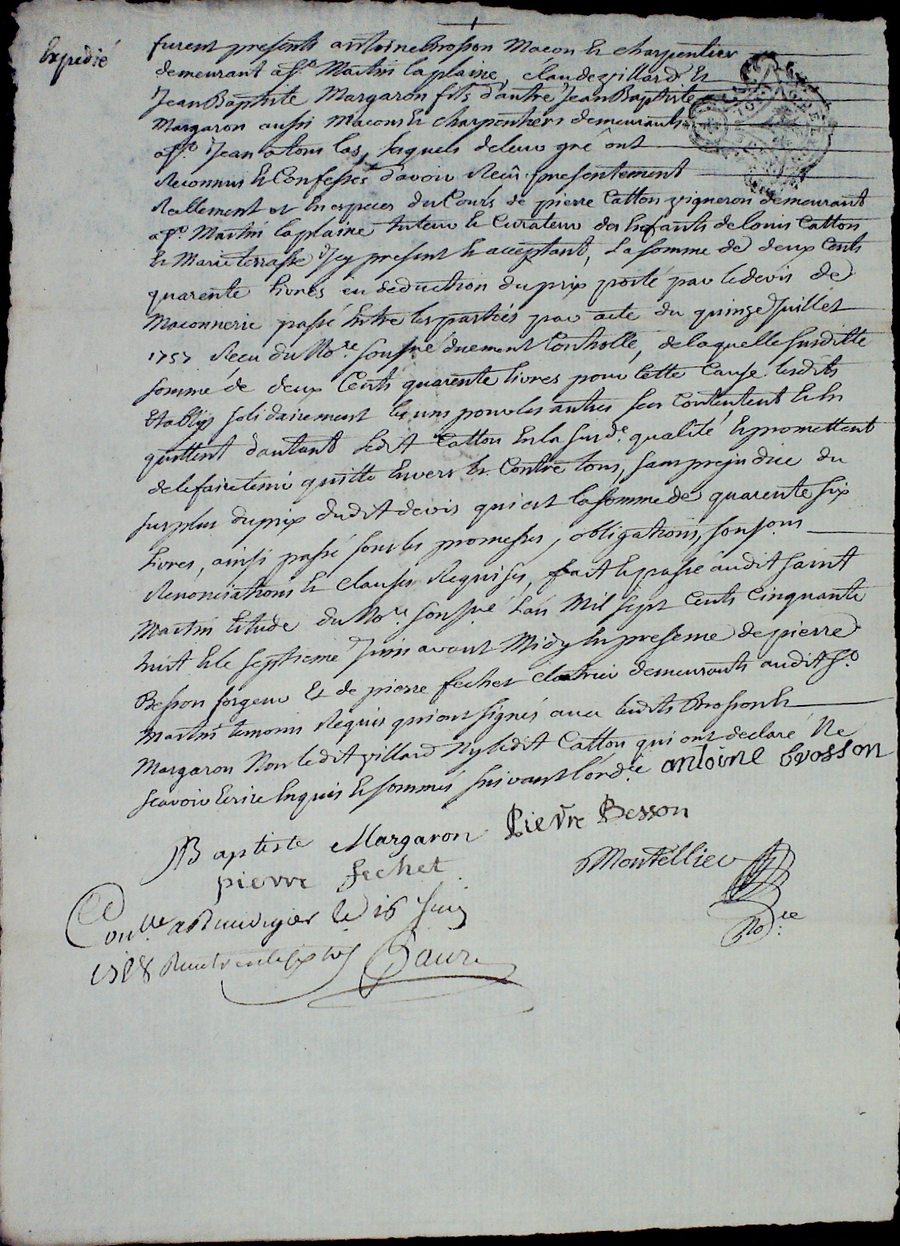 Expedié
furent presents antoine brosson Macon et charpentier
demeurant a St. Martin laplaine, claude villard Et
Jean Baptiste Margaron fils d'autre Jean Baptiste
Margaron aussi Macons et charpentiers demeurants
a St. Jean a tous las, laquels de leur gré ont
Reconnus et Confessés d'avoir Recû presentement
Reellement et En especes du Cours de pierre Catton vigneron demeurant
a St. Martin laplaine tuteur et Curateur des Enfants de louis Catton
et Marie terrasse Icy present et acceptant, la somme de deux Cents
quarente livres en deduction du prix porté par le devis de
Maconnerie passé Entre les parties par acte du quinze Juillet
1757 Recu du Nore. soussné duement Controllé, de laquelle susditte
somme de deux Cents quarente livres pour Cette Cause lesdits
Etablis solidairement les uns pour les autres sen Contentent et En
quittent d'autant ledit Catton En la susde. qualité Et promettent
de le faire tenir quitte Envers Et Contre tous, sans prejudice du
surplus du prix dudit devis qui est la somme de quarente six
livres, ainsi passé sous les promesses, obligations, soumons
Renonciations et clauses Requises, fait et passé audit saint
Martin Etude du Nore. soussné. L'an Mil sept Cents Cinquante
huit et le septieme Juin avant Midy En presence de pierre
Besson forgeur Et de pierre fechet cloutrier demeurants audit St.
Martin temoins Requis qui ont signés avec lesdits Brosson et
Margaron Non ledit villard Ny ledit Catton qui ont declaré Ne
scavoir Ecrire Enquis Et sommés suivant l'ordce antoine brosson
JB aptiste Margaron Pierre Besson
pierre fechet Montellier
Nore.
Conlle a Rivedegier le 16 Juin
1758 Recu trente six sols Baur